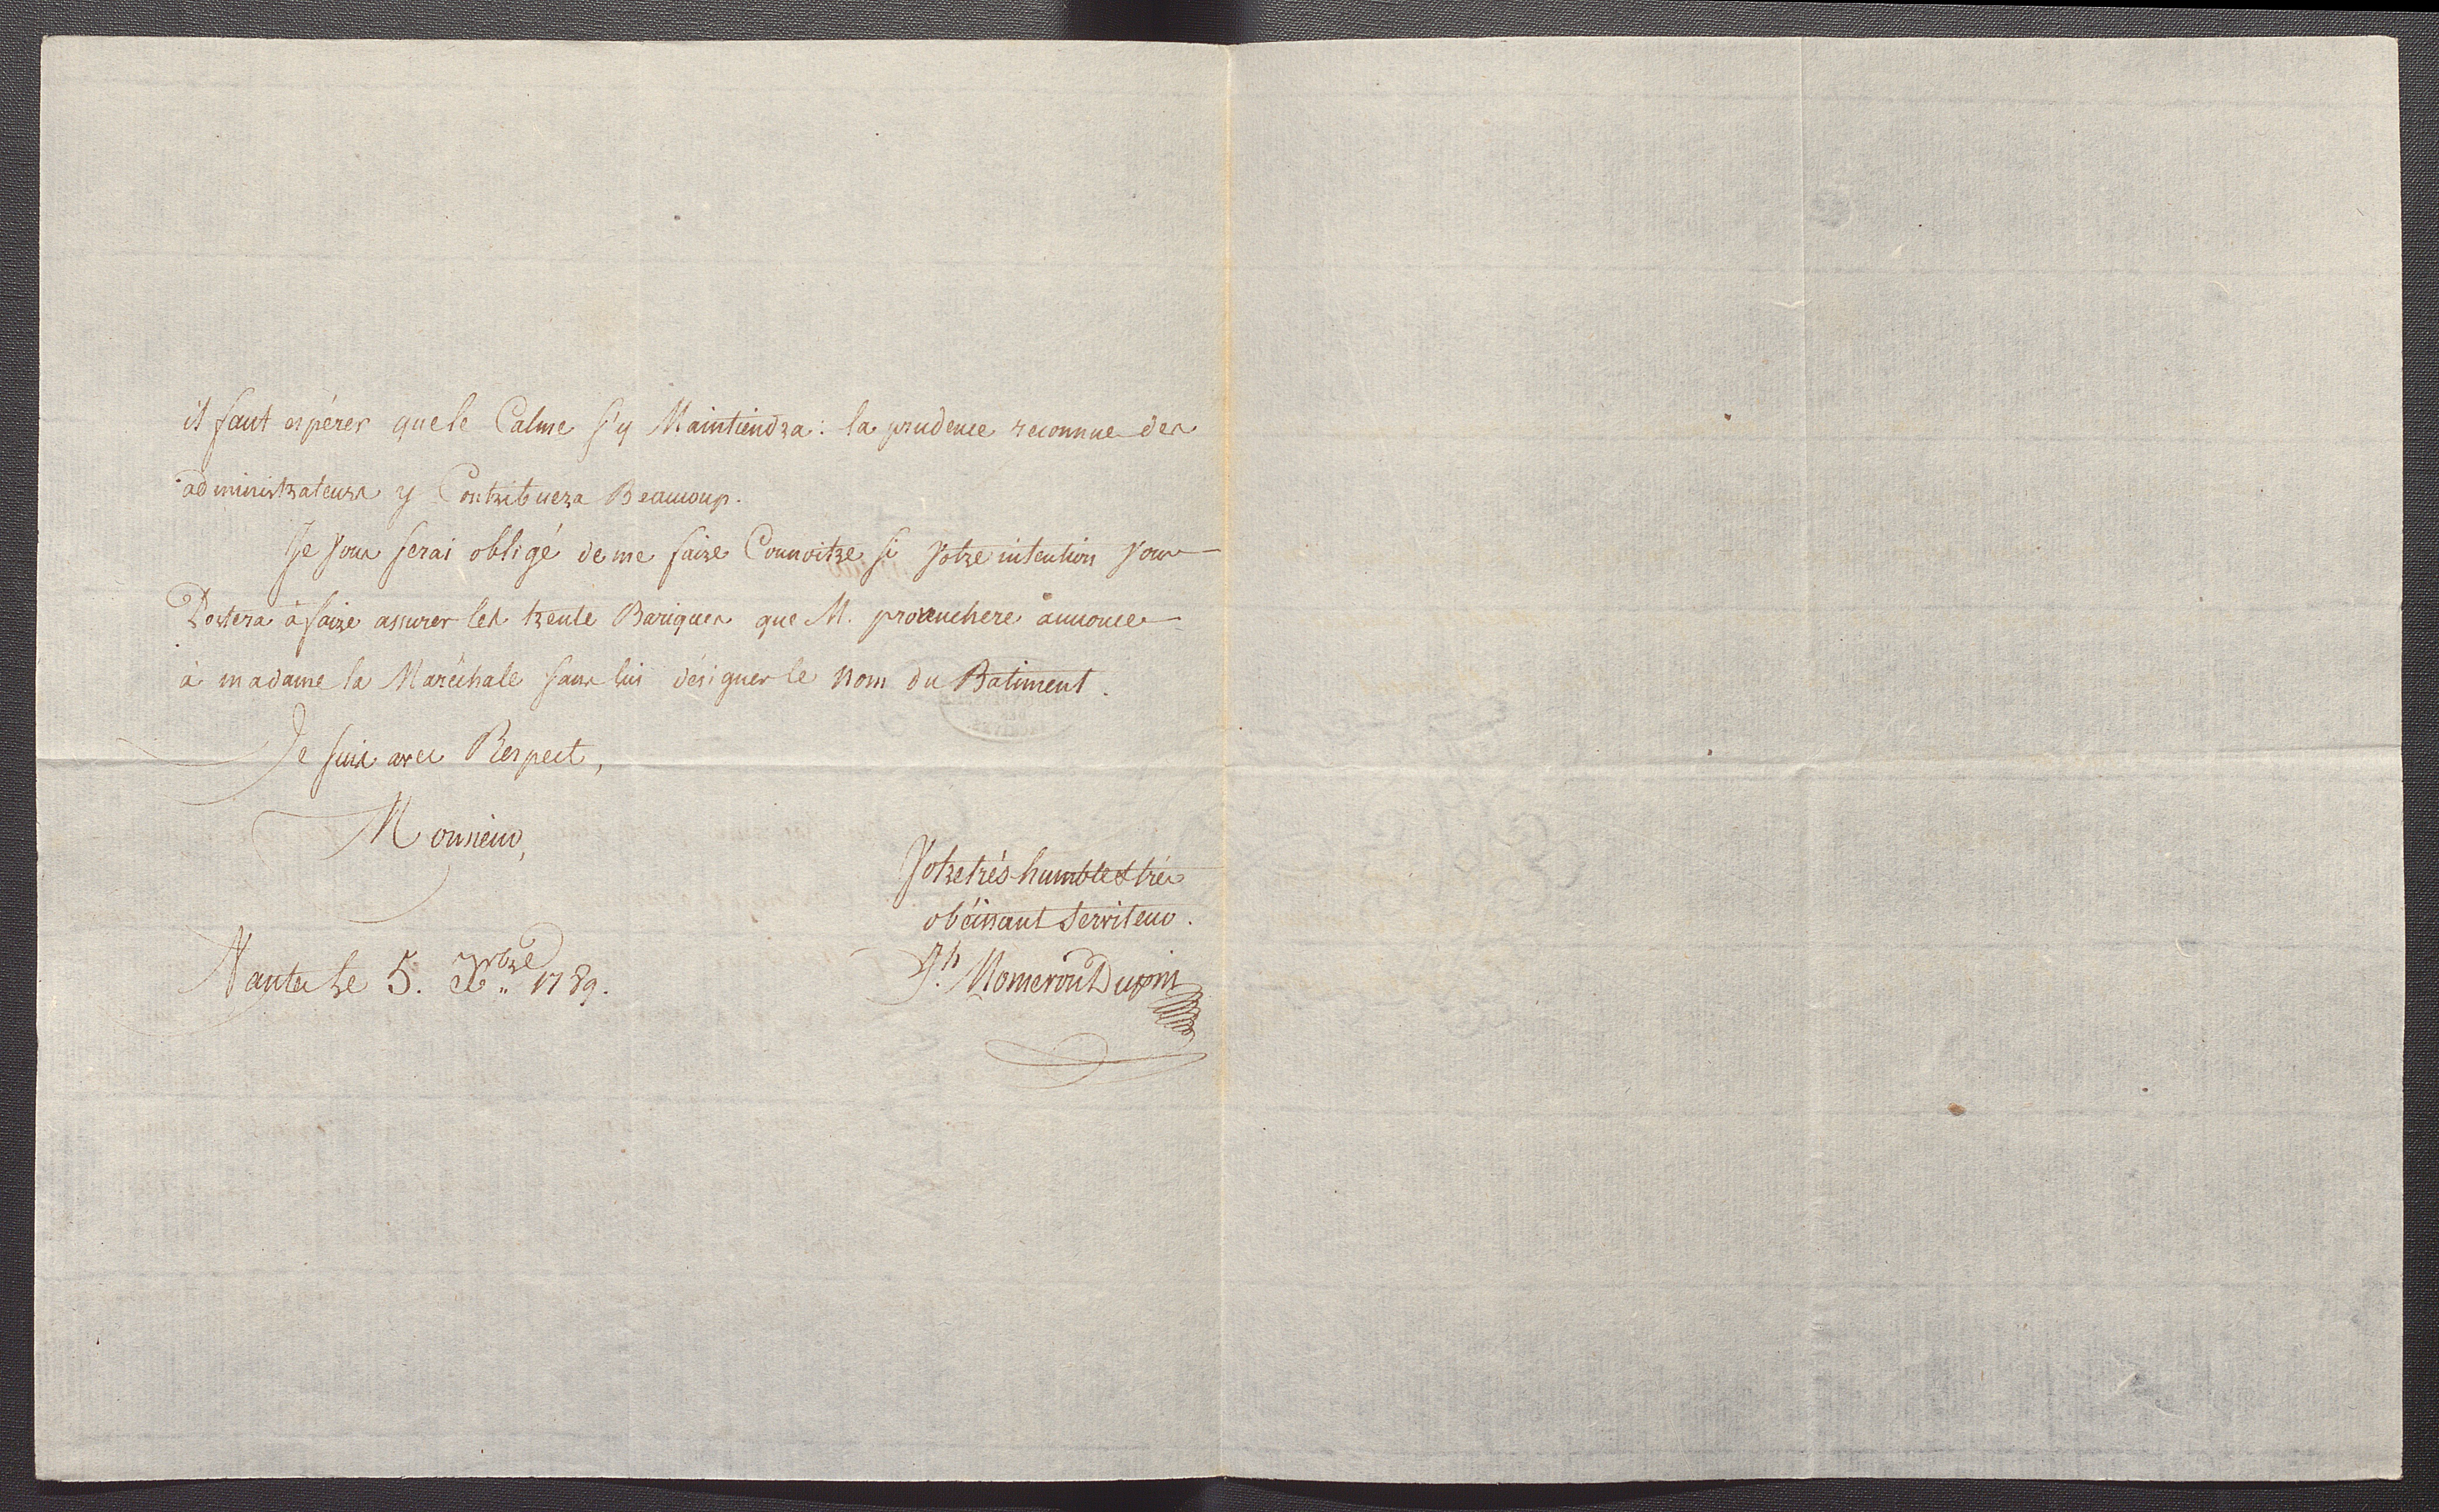 il faut espérer que le Calme s'y Maintiendra : la prudence reconnue des
administrateurs y Contribuera Beaucoup.
Je vous serai obligé de me faire Connoitre si votre intention vous
Portera à faire assurer les trente Bariques que M. provenchere annonce
à madame la Maréchale sans lui désigner le nom du Batiment.
Je suis avec Respect,
Monsieur,
Votre très humble & très
obéissant Serviteur.
Nantes le 5. Xbre 1789.
Jh. Momeron Dupin